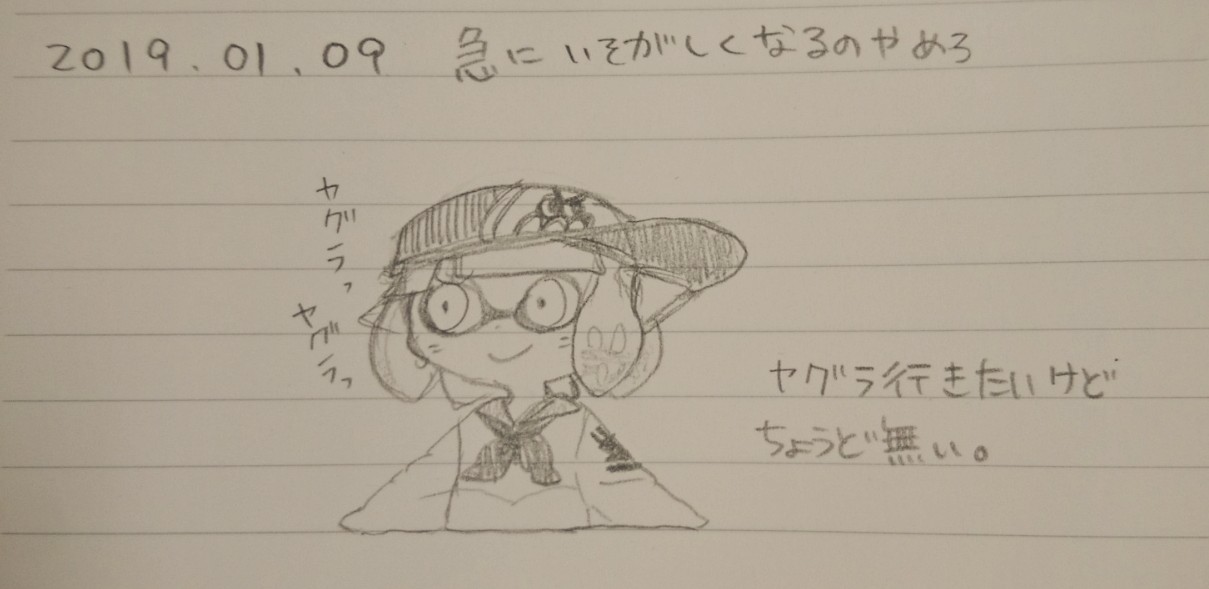 2019.01.09 急にいそがしくなるのやめろ
ヤグラっ
ヤグラっ
ヤグラ行きたいけど
ちょうど無い。